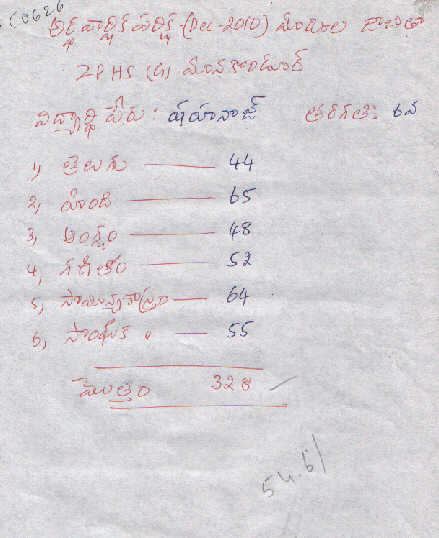 C0626
అర్థ వార్షిక పరీక్ష (Dec-2010) మార్కుల జాబితా
ZPHS (G) మానకొండూర్
విద్యార్థి పేరు : షహనాజ్ తరగతి: 6వ
1, తెలుగు —— 44
2, హింది —— 65
3, ఆంగ్లం —— 48
4, గణితం —— 52
5, సామాన్యశాస్త్రం —— 64
6, సాంఘీక " —— 55
మొత్తం 328
54.6/